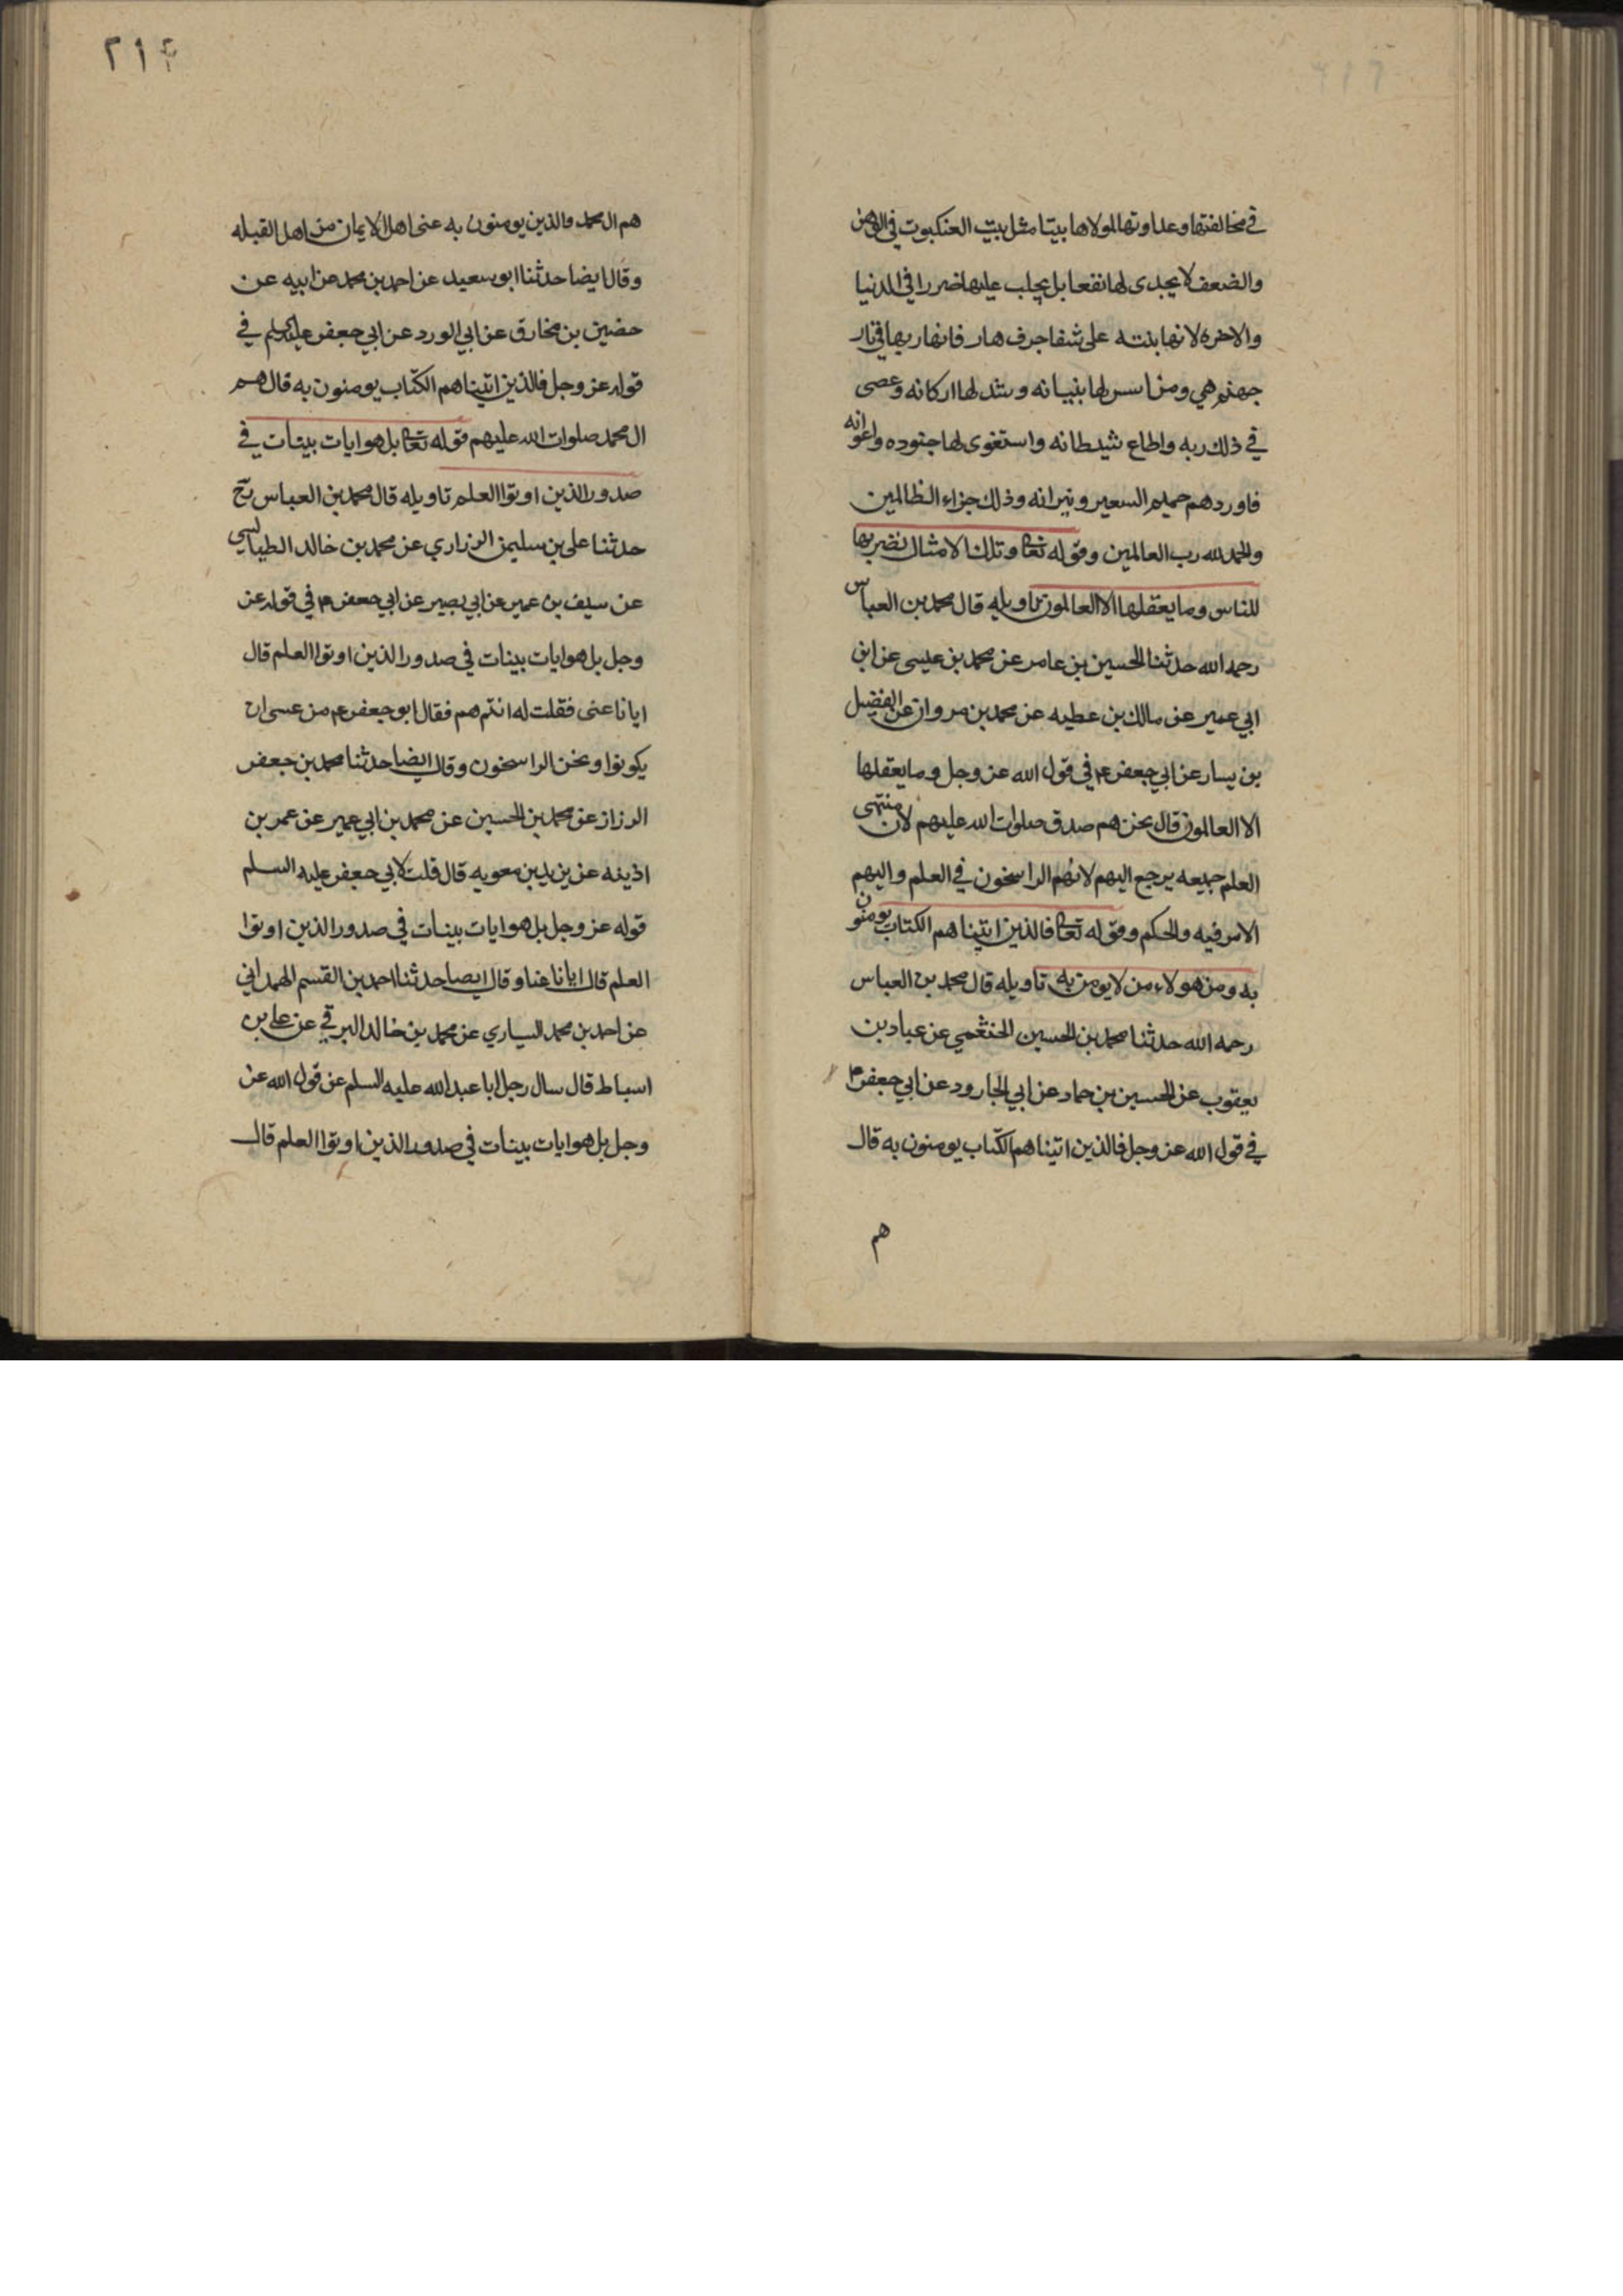 في مخالفتها وعداوتها لمولاها بيتا مثل بيت العنكبوت في الوهن
والضعف لا يجدى لها نفعا بل يجلب عليها ضررا في الدنيا
والاخره لانها بنته على شفا جرف هار فانهار بها في نار
جهنم هي ومن اسس لها بنيانه وشد لها اركانه وعصى
في ذلك ربه واطاع شيطانه واستغوى لها جنوده واعوانه
فاوردهم حميم السعير ونيرانه وذلك جزاء الظالمين
والحمد لله رب العالمين وقوله تعا وتلك الامثال نضربها
للناس وما يعقلها الا العالمون تاويله قال محمد بن العباس
رحمه الله حدثنا الحسين بن عامر عن محمد بن عيسى عن ابن
ابي عمير عن مالك بن عطيه عن محمد بن مروان عن الفضيل
بن يسار عن ابي جعفر ع م في قول الله عز وجل وما يعقلها
الا العالمون قال نحن هم صدق صلوات الله عليهم لان منتهى
العلم جميعه يرجع اليهم لانهم الراسخون في العلم واليهم
الامر فيه والحكم وقوله تعا فالذين اتيناهم الكتاب يومنون
به ومن هولاء من لا يومن به تاويله قال محمد بن العباس
رحمه الله حدثنا محمد بن الحسين الخثعمي عن عباد بن
يعقوب عن الحسين بن حماد عن ابي الجارود عن ابي جعفر ع م
في قول الله عز وجل فالذين اتيناهم الكتاب يومنون به قال
هم
٢١٤
هم ال محمد والذين يومنون به عنى اهل الايمان من اهل القبله
وقال ايضا حدثنا ابو سعيد عن احمد بن محمد عن ابيه عن
حضين بن مخارق عن ابي الورد عن ابي جعفر عليه السلم في
قوله عز وجل فالذين اتيناهم الكتاب يومنون به قال هم
ال محمد صلوات الله عليهم قوله تعا بل هو ايات بينات في
صدور الذين اوتوا العلم تاويله قال محمد بن العباس رح
حدثنا على بن سليمن الزراري عن محمد بن خالد الطيالسي
عن سيف بن عمير عن ابي بصير عن ابي جعفر ع م في قوله عز
وجل بل هو ايات بينات في صدور الذين اوتوا العلم قال
ايانا عنى فقلت له انتم هم فقال ابو جعفر ع م من عسى ان
يكونوا ونحن الراسخون وقال ايضا حدثنا محمد بن جعفر
الرزاز عن محمد بن الحسين عن محمد بن ابي عمير عن عمر بن
اذينه عن يزيد بن معويه قال قلت لابي جعفر عليه السلم
قوله عز وجل بل هو ايات بينات في صدور الذين اوتوا
العلم قال ايانا عنا وقال ايضا حدثنا احمد بن القسم الهمداني
عن احمد بن محمد السياري عن محمد بن خالد البرقي عن علي بن
اسباط قال سال رجل ابا عبد الله عليه السلم عن قول الله عز
وجل بل هو ايات بينات في صدور الذين اوتوا العلم قال